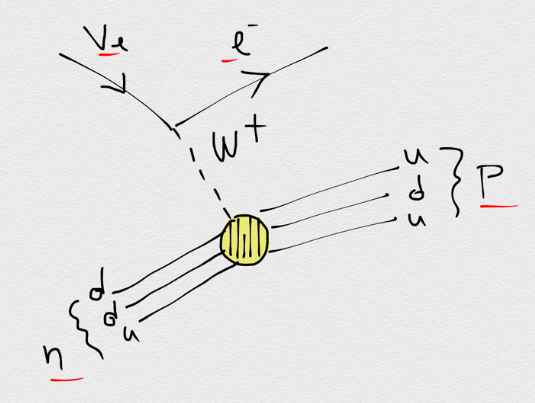 νe e⁻
W⁺
u
d
u
P
d
d
u
n